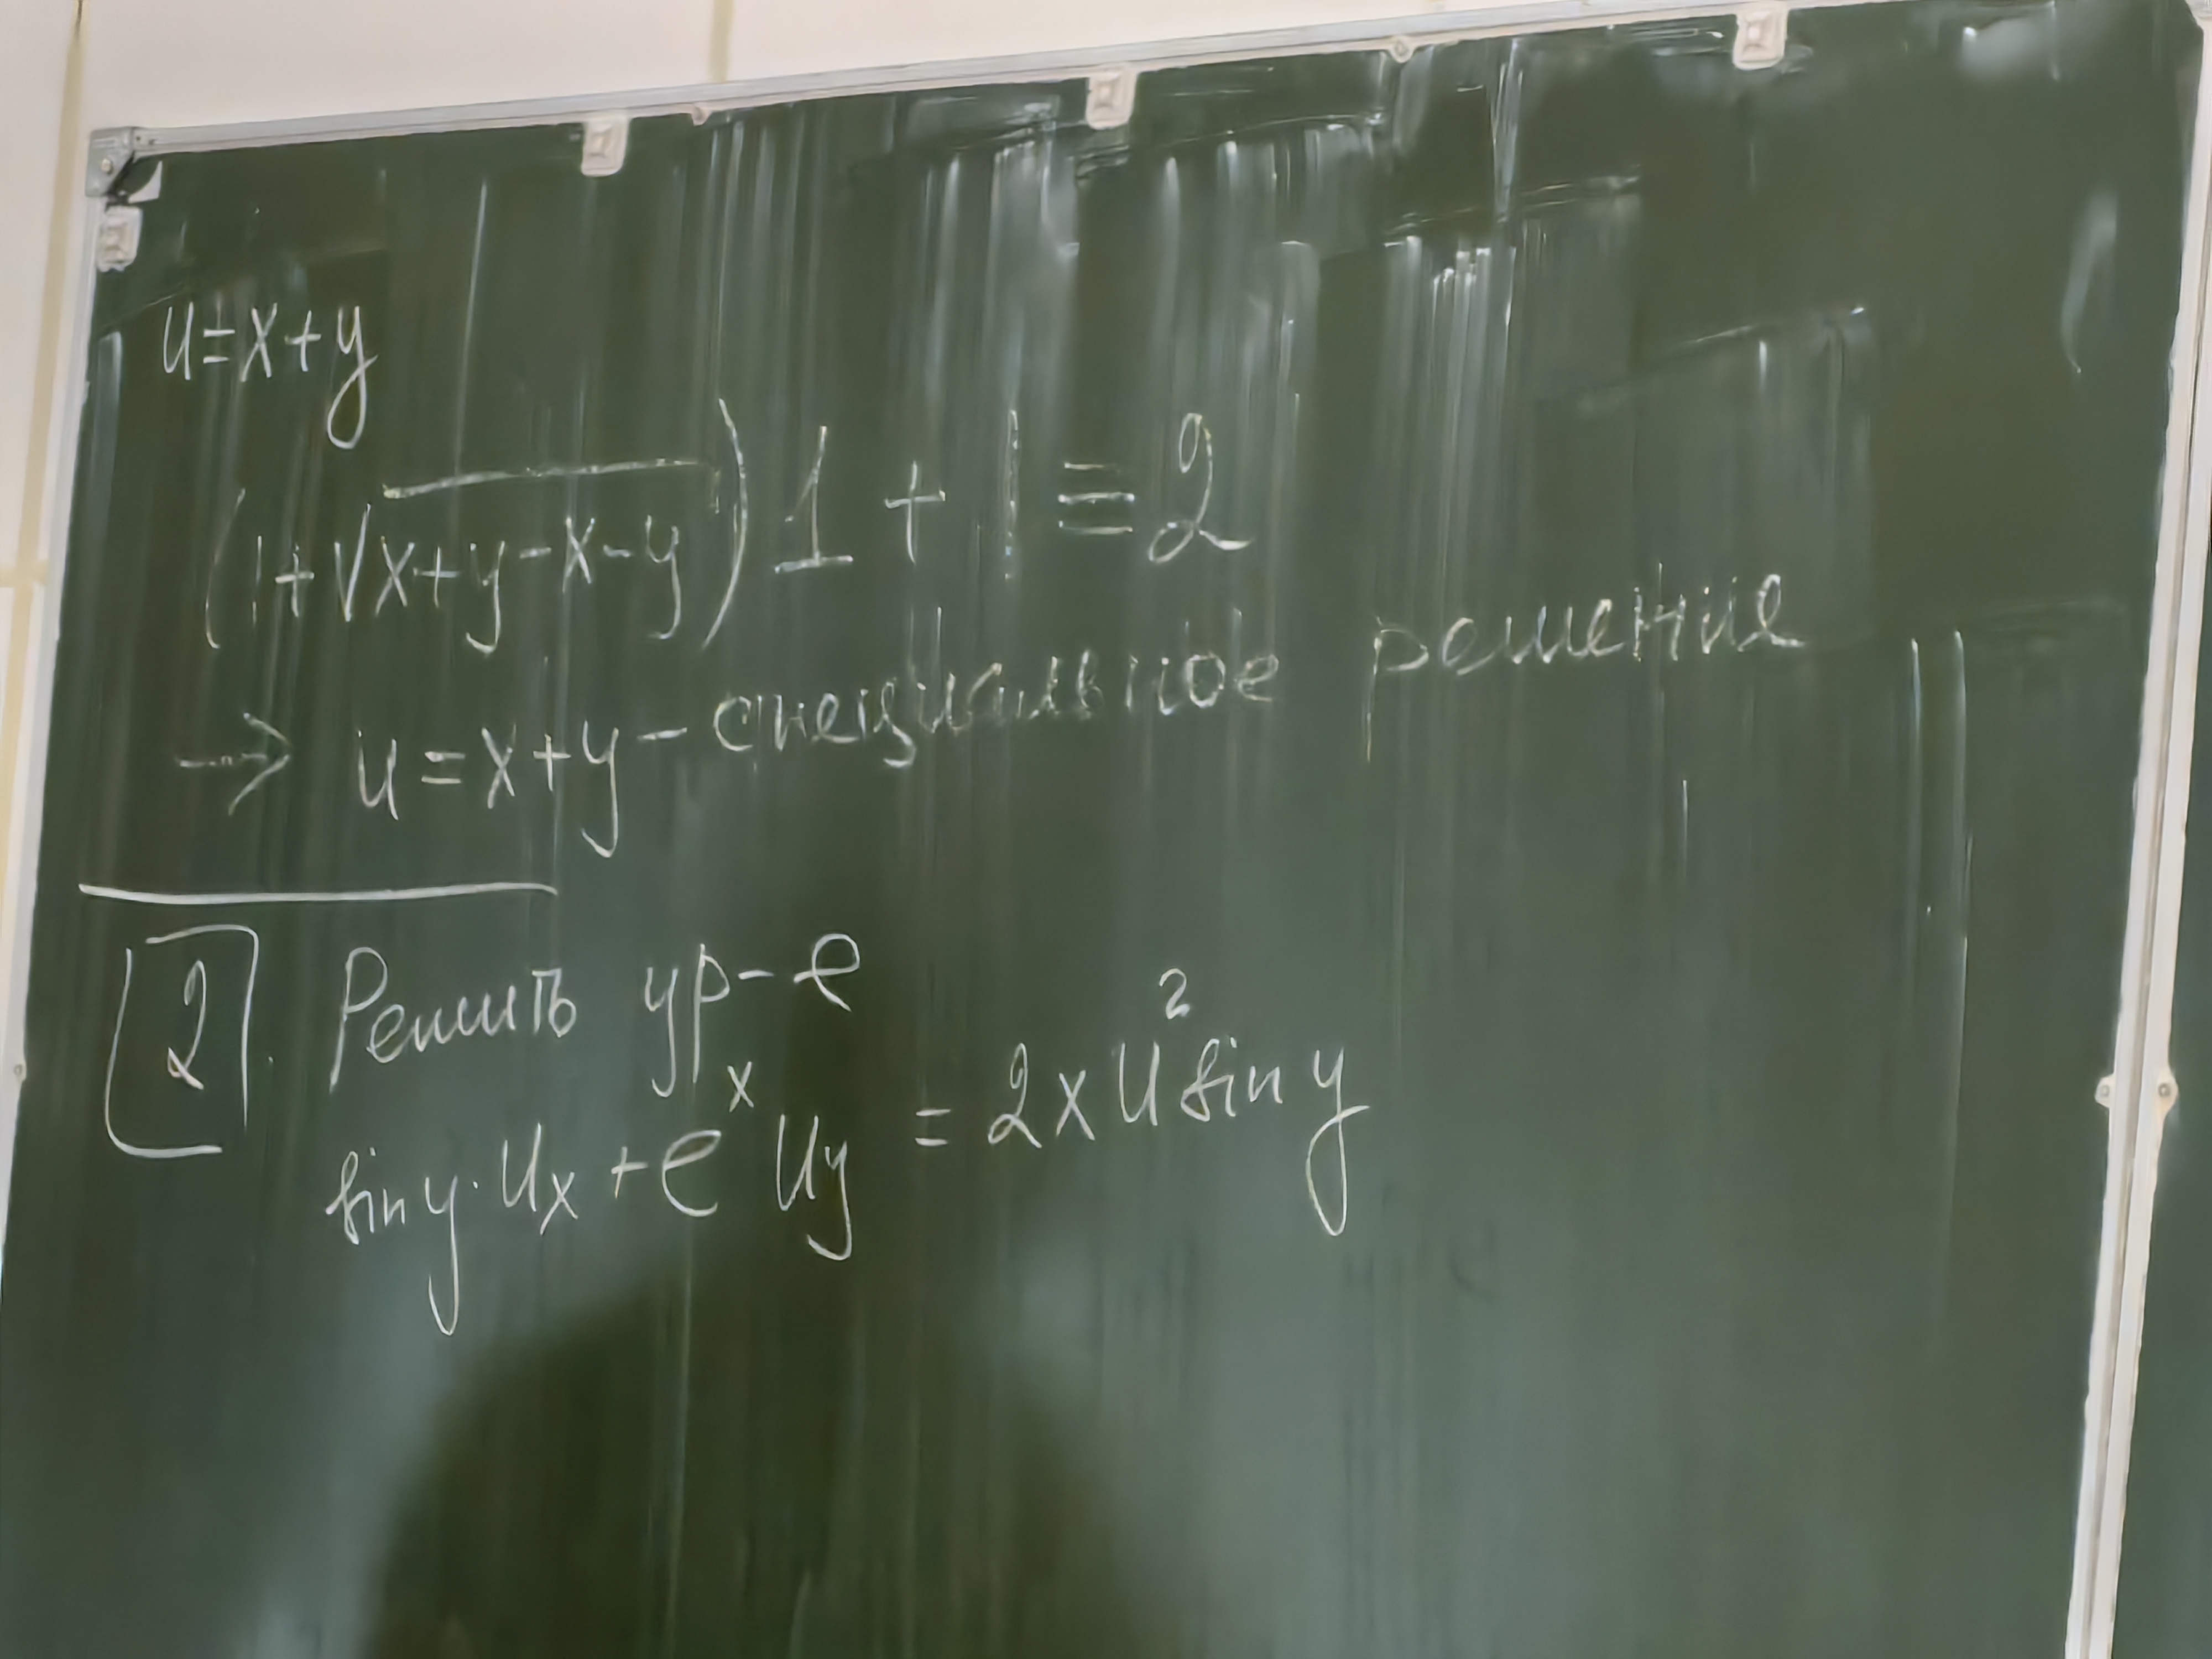 u=x+y
(1+√x+y-x-y)1+1≡2
→ u=x+y – специальное решение
2. Решить ур-е
sin y · uₓ + eˣ u_y = 2xu² sin y